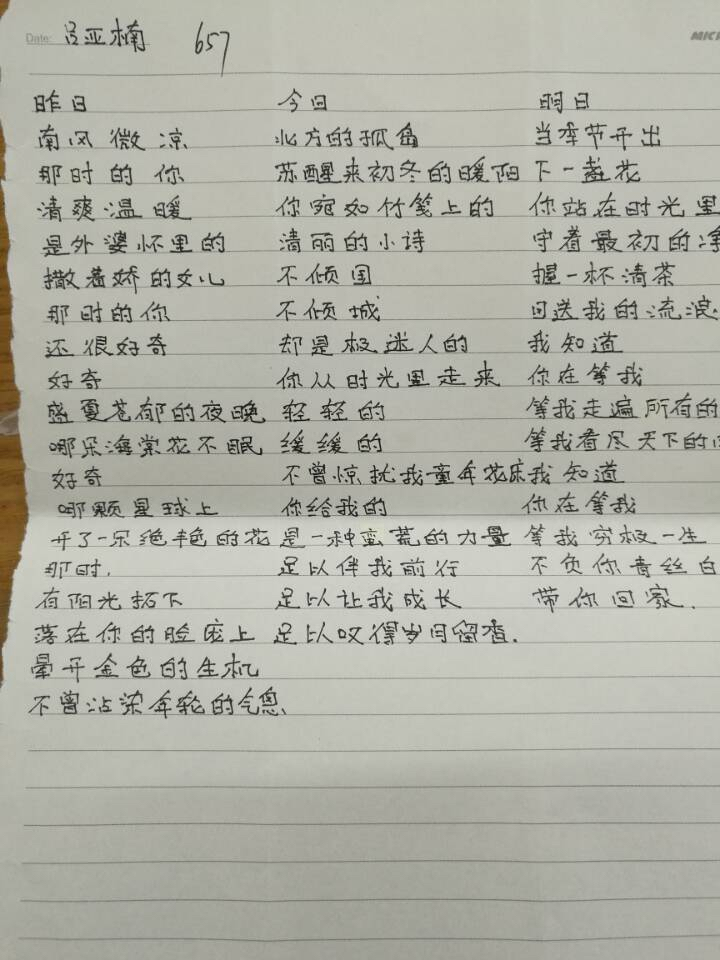 Date: 吕亚楠 657
昨日
南风微凉
那时的你
清爽温暖
是外婆怀里的
撒着娇的女儿
那时的你
还很好奇
好奇
盛夏苍郁的夜晚
哪朵海棠花不眠
好奇
哪颗星球上
开了一朵绝艳色的花
那时,
有阳光拓下
落在你的脸庞上
晕开金色的生机
不曾沾染年轮的气息
今日
北方的孤岛
苏醒来初冬的暖阳
你宛如竹笺上的
清丽的小诗
不倾国
不倾城
却是极迷人的
你从时光里走来
轻轻的
缓缓的
不曾惊扰我童年花床
你给我的
是一种蛮荒的力量
足以伴我前行
足以让我成长
足以叹得岁月留香.
明日
当季节开出
下一盏花
你站在时光里
守着最初的
握一杯清茶
回送我的流浪
我知道
你在等我
等我走遍所有的
等我看尽天下的
我知道
你在等我
等我穷极一生
不负你青丝白
带你回家.